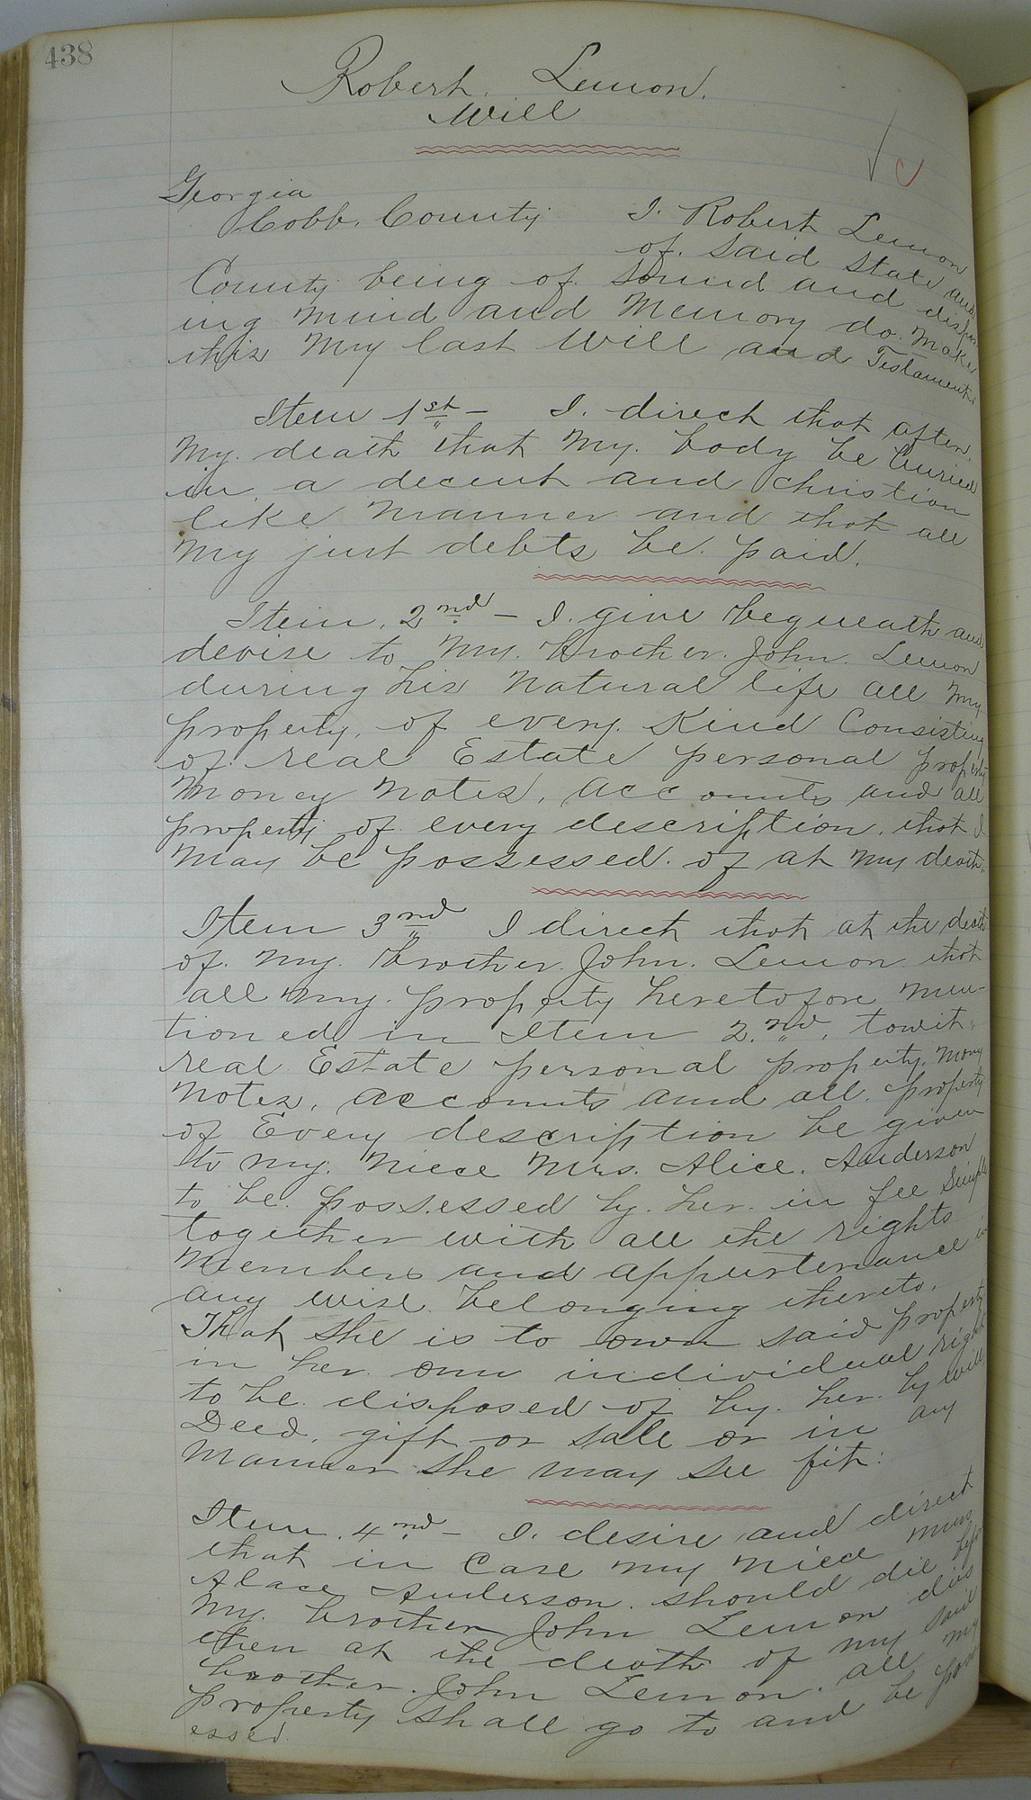 438
Robert Lemon.
Will
Georgia
Cobb. County I. Robert Lemon
of. said State and
County being of. Sound and dispos
ing mind and Memory do. Make
this My last Will and Testament.
Item 1st - I. direct that after.
My. death that My. body be buried
in. a decent and christian
like manner and that all
My just debts be. paid.
Item. 2nd - I. give bequeath and
devise to My. brother. John. Lemon
during his Natural life all My
property. of every. Kind Consisting
of. real Estate personal property
Money Notes, accounts and all
property of every description. that I
May be possessed. of at My death.
Item 3nd I direct that at the death
of. My. brother. John. Lemon that
all my. property heretofore Men-
tioned in Item 2.nd, towit.
real Estate personal property, Mony
Notes, accounts and all. property
of Every description be given
to My. Niece Mrs. Alice. Anderson
to be. possessed by. her. in fee Simple
together with all the rights
Members and appurtenance in
any wise. belonging thereto.
That She is to own said property
in her. own individual right
to be. disposed of by. her. by Will
Deed, gift or Sale or in any
Manner She may see fit:
Item. 4nd - I. desire and direct
that in Case My Niece Mrs
Alace Anderson. Should die before
My. brother John Lemon dies
then at the death of my said
brother. John Lemon. all My
property Shall go to and be poss
essed